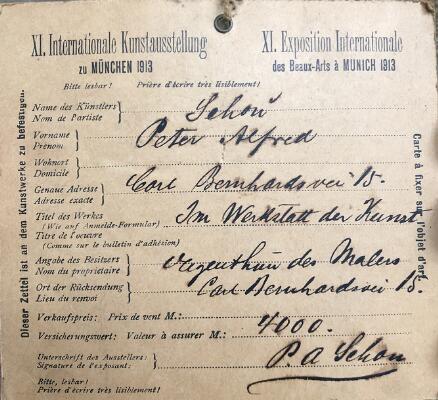 XI. Internationale Kunstausstellung
zu MÜNCHEN 1913
XI. Exposition Internationale
des Beaux-Arts à MUNICH 1913
Bitte lesbar! Prière d'écrire très lisiblement!
Name des Künstlers
Nom de l'artiste
Schou
Vorname
Prénom
Peter Alfred
Wohnort
Domicile
Genaue Adresse
Adresse exacte
Carl Bernhardsvei 15.
Titel des Werkes
(Wie auf Anmelde-Formular)
Titre de l'oeuvre
(Comme sur le bulletin d'adhésion)
Im Werkstatt der Kunst
Angabe des Besitzers
Nom du propriétaire
Eigenthum des Malers
Ort der Rücksendung
Lieu du renvoi
Carl Bernhardsvei 15
Verkaufspreis: Prix de vent M.:
Versicherungswert: Valeur à assurer M.:
4000.
Unterschrift des Ausstellers:
Signature de l'exposant:
P. A Schou
Bitte, lesbar!
Prière d'écrire très lisiblement!
Dieser Zettel ist an dem Kunstwerke zu befestigen.
Carte à fixer sur l'objet d'art.